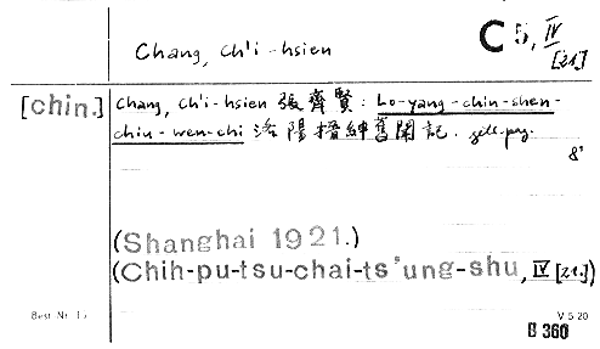 Chang, Ch'i-hsien
C 5, IV
[21]
[chin.]
Chang, Ch'i-hsien 張齊賢: Lo-yang-chin-shen-
chiu-wen-chi 洛陽搢紳舊聞記. getr. pag.
8°
(Shanghai 1921.)
(Chih-pu-tsu-chai-ts'ung-shu, IV [21.])
Best Nr. 15
V 5 20
B 360